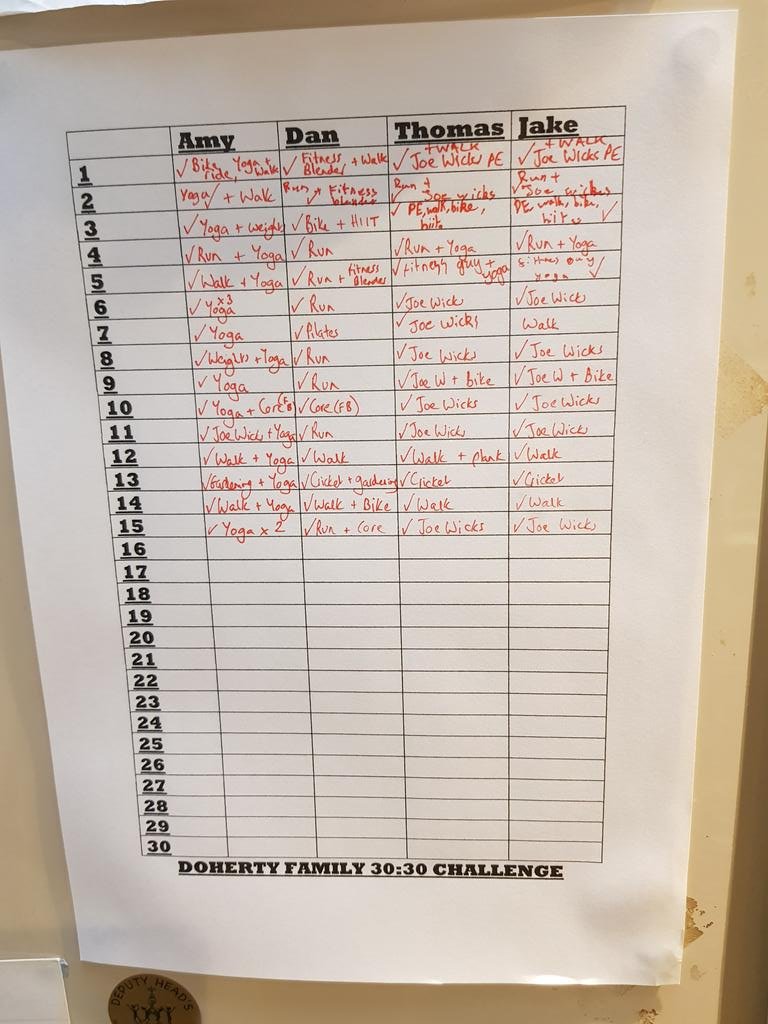 Amy Dan Thomas Jake
1 ✓ Bike ride, Yoga + Walk ✓ Fitness Blender + Walk ✓ Joe Wicks PE + WALK ✓ Joe Wicks PE + WALK
2 Yoga ✓ + Walk Run ✓ + Fitness blender Run + ✓ Joe wicks Run + ✓ Joe wickes
3 ✓ Yoga + weights ✓ Bike + HIIT ✓ PE, walk, bike, hiit. PE, walk, bike, hiit. ✓
4 ✓ Run + Yoga ✓ Run ✓ Run + Yoga ✓ Run + Yoga
5 ✓ Walk + Yoga ✓ Run + Fitness Blender ✓ Fitness guy + yoga Fitness Guy yoga ✓
6 ✓ Yoga x3 ✓ Run ✓ Joe Wicks ✓ Joe Wicks
7 ✓ Yoga ✓ Pilates ✓ Joe Wicks Walk
8 ✓ Weights + Yoga ✓ Run ✓ Joe Wicks ✓ Joe Wicks
9 ✓ Yoga ✓ Run ✓ Joe W + bike ✓ Joe W + Bike
10 ✓ Yoga + Core (FB) ✓ Core (FB) ✓ Joe Wicks ✓ Joe Wicks
11 ✓ Joe Wicks + Yoga ✓ Run ✓ Joe Wicks ✓ Joe Wicks
12 ✓ Walk + Yoga ✓ Walk ✓ Walk + plank ✓ Walk
13 ✓ Gardening + Yoga ✓ Cricket + gardening ✓ Cricket ✓ Cricket
14 ✓ Walk + Yoga ✓ Walk + Bike ✓ Walk ✓ Walk
15 ✓ Yoga x 2 ✓ Run + Core ✓ Joe Wicks ✓ Joe Wicks
16
17
18
19
20
21
22
23
24
25
26
27
28
29
30
DOHERTY FAMILY 30:30 CHALLENGE
DEPUTY HEAD'S